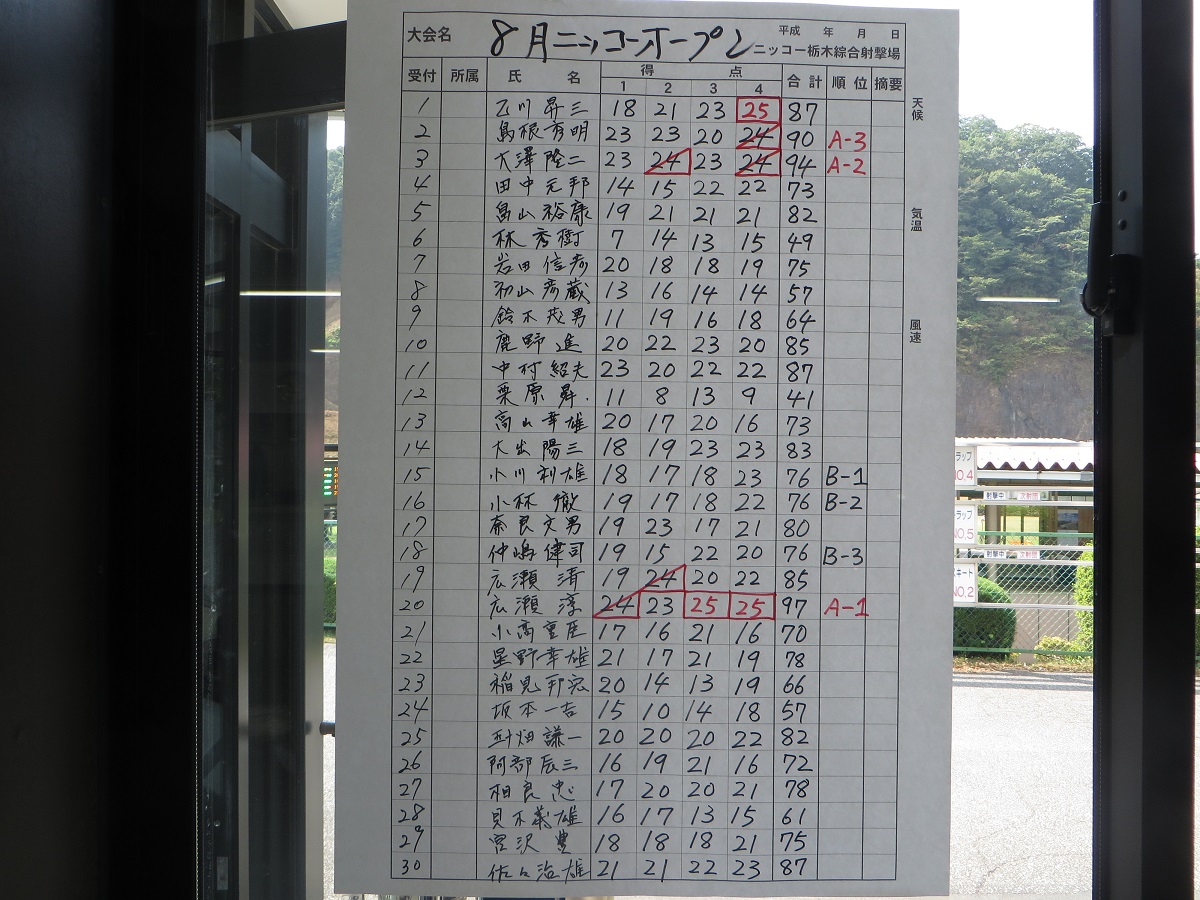 大会名 8月ニッコーオープン 平成 年 月 日
ニッコー栃木綜合射撃場
受付 所属 氏名 得点 合計 順位 摘要
1 2 3 4
1 乙川昇三 18 21 23 25 87
2 島根秀明 23 23 20 24 90 A-3
3 大澤隆二 23 24 23 24 94 A-2
4 田中元邦 14 15 22 22 73
5 畠山裕康 19 21 21 21 82
6 林秀樹 7 14 13 15 49
7 岩田信彦 20 18 18 19 75
8 初山彦蔵 13 16 14 14 57
9 鈴木 男 11 19 16 18 64
10 鹿野進 20 22 23 20 85
11 中村紹夫 23 20 22 22 87
12 栗原昇 11 8 13 9 41
13 高山幸雄 20 17 20 16 73
14 大出陽三 18 19 23 23 83
15 小川利雄 18 17 18 23 76 B-1
16 小林徹 19 17 18 22 76 B-2
17 奈良文男 19 23 17 21 80
18 仲嶋健司 19 15 22 20 76 B-3
19 広瀬清 19 24 20 22 85
20 広瀬淳 24 23 25 25 97 A-1
21 小高重臣 17 16 21 16 70
22 星野幸雄 21 17 21 19 78
23 稲見邦宏 20 14 13 19 66
24 坂本一吉 15 10 14 18 57
25 畑謙一 20 20 20 22 82
26 阿部辰三 16 19 21 16 72
27 相良忠 17 20 20 21 78
28 貝木義雄 16 17 13 15 61
29 宮沢豊 18 18 18 21 75
30 佐々治雄 21 21 22 23 87
天候
気温
風速
ラップ
NO.4
射撃中
ラップ
NO.5
射撃中
スキート
NO.2